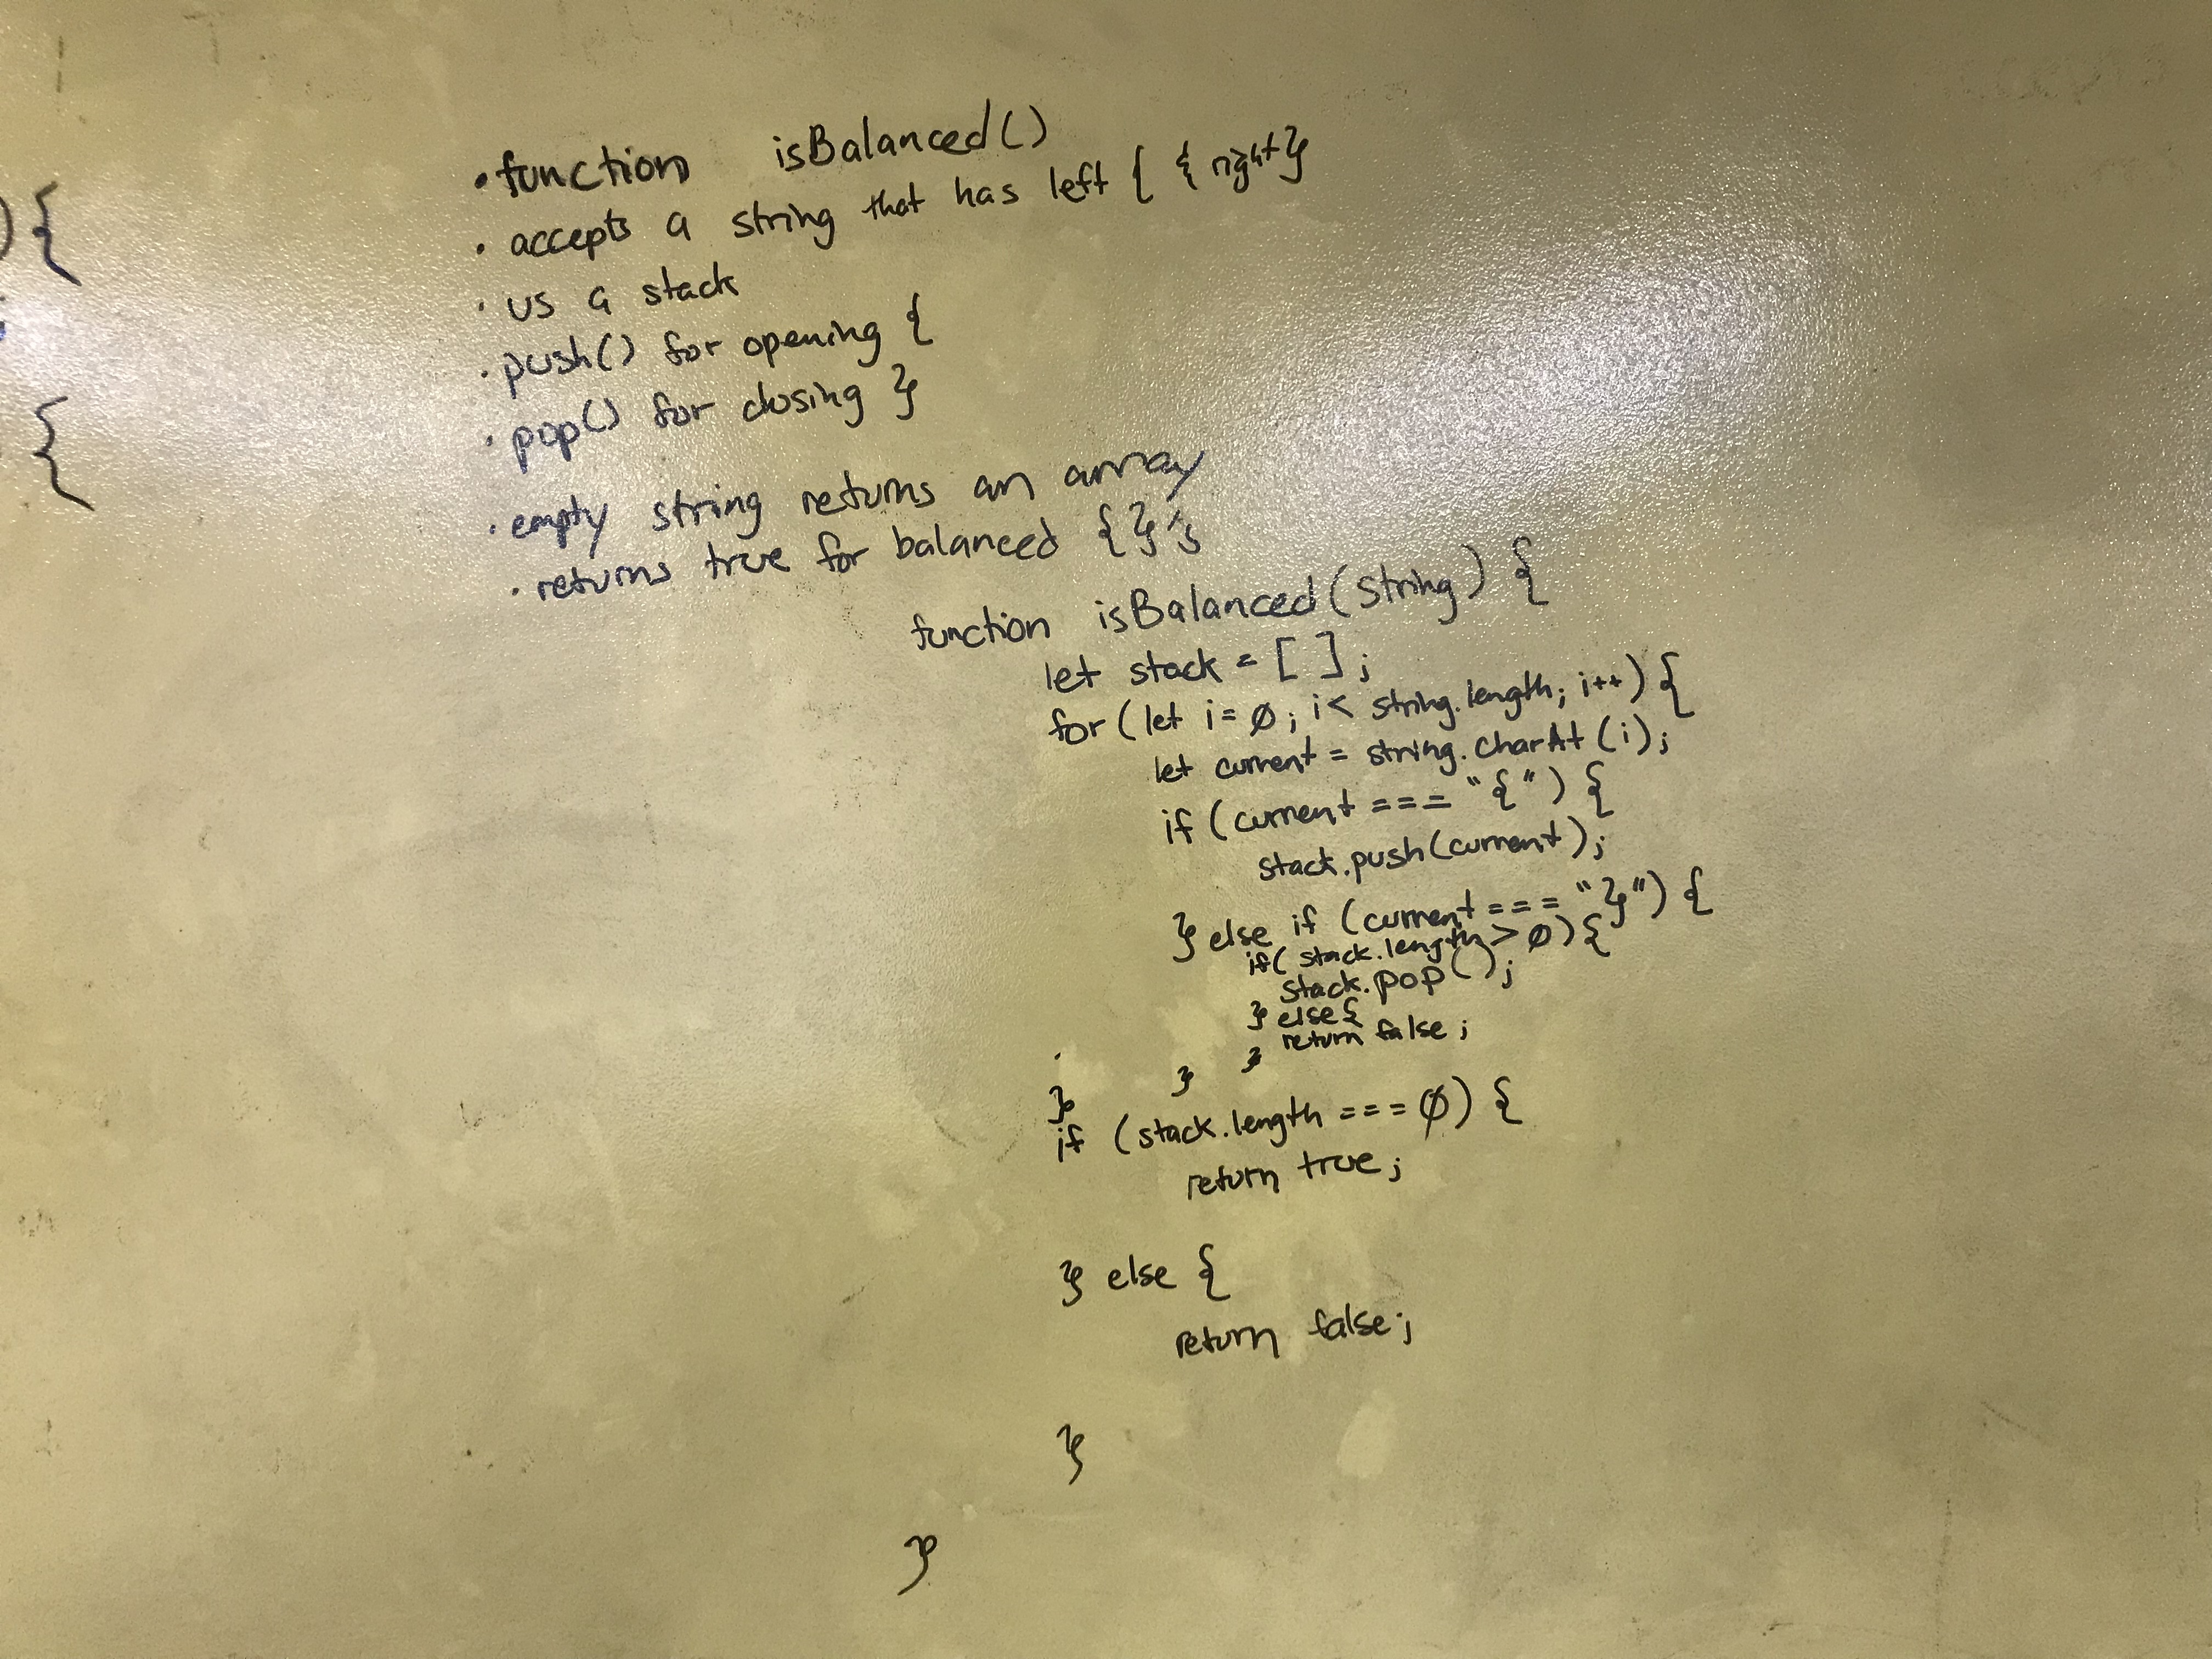 ) {
{
• function isBalanced()
• accepts a string that has left { & right }
• us a stack
• push() for opening {
• pop() for closing }
• empty string returns an array
• returns true for balanced { }'s
function isBalanced(string) {
let stack = [ ];
for (let i = Ø; i < string.length; i++) {
let current = string.charAt(i);
if (current === "{") {
stack.push(current);
} else if (current === "}") {
if( stack.length > Ø) {
stack.pop();
} else {
return false;
}
}
}
if (stack.length === Ø) {
return true;
} else {
return false;
}
}